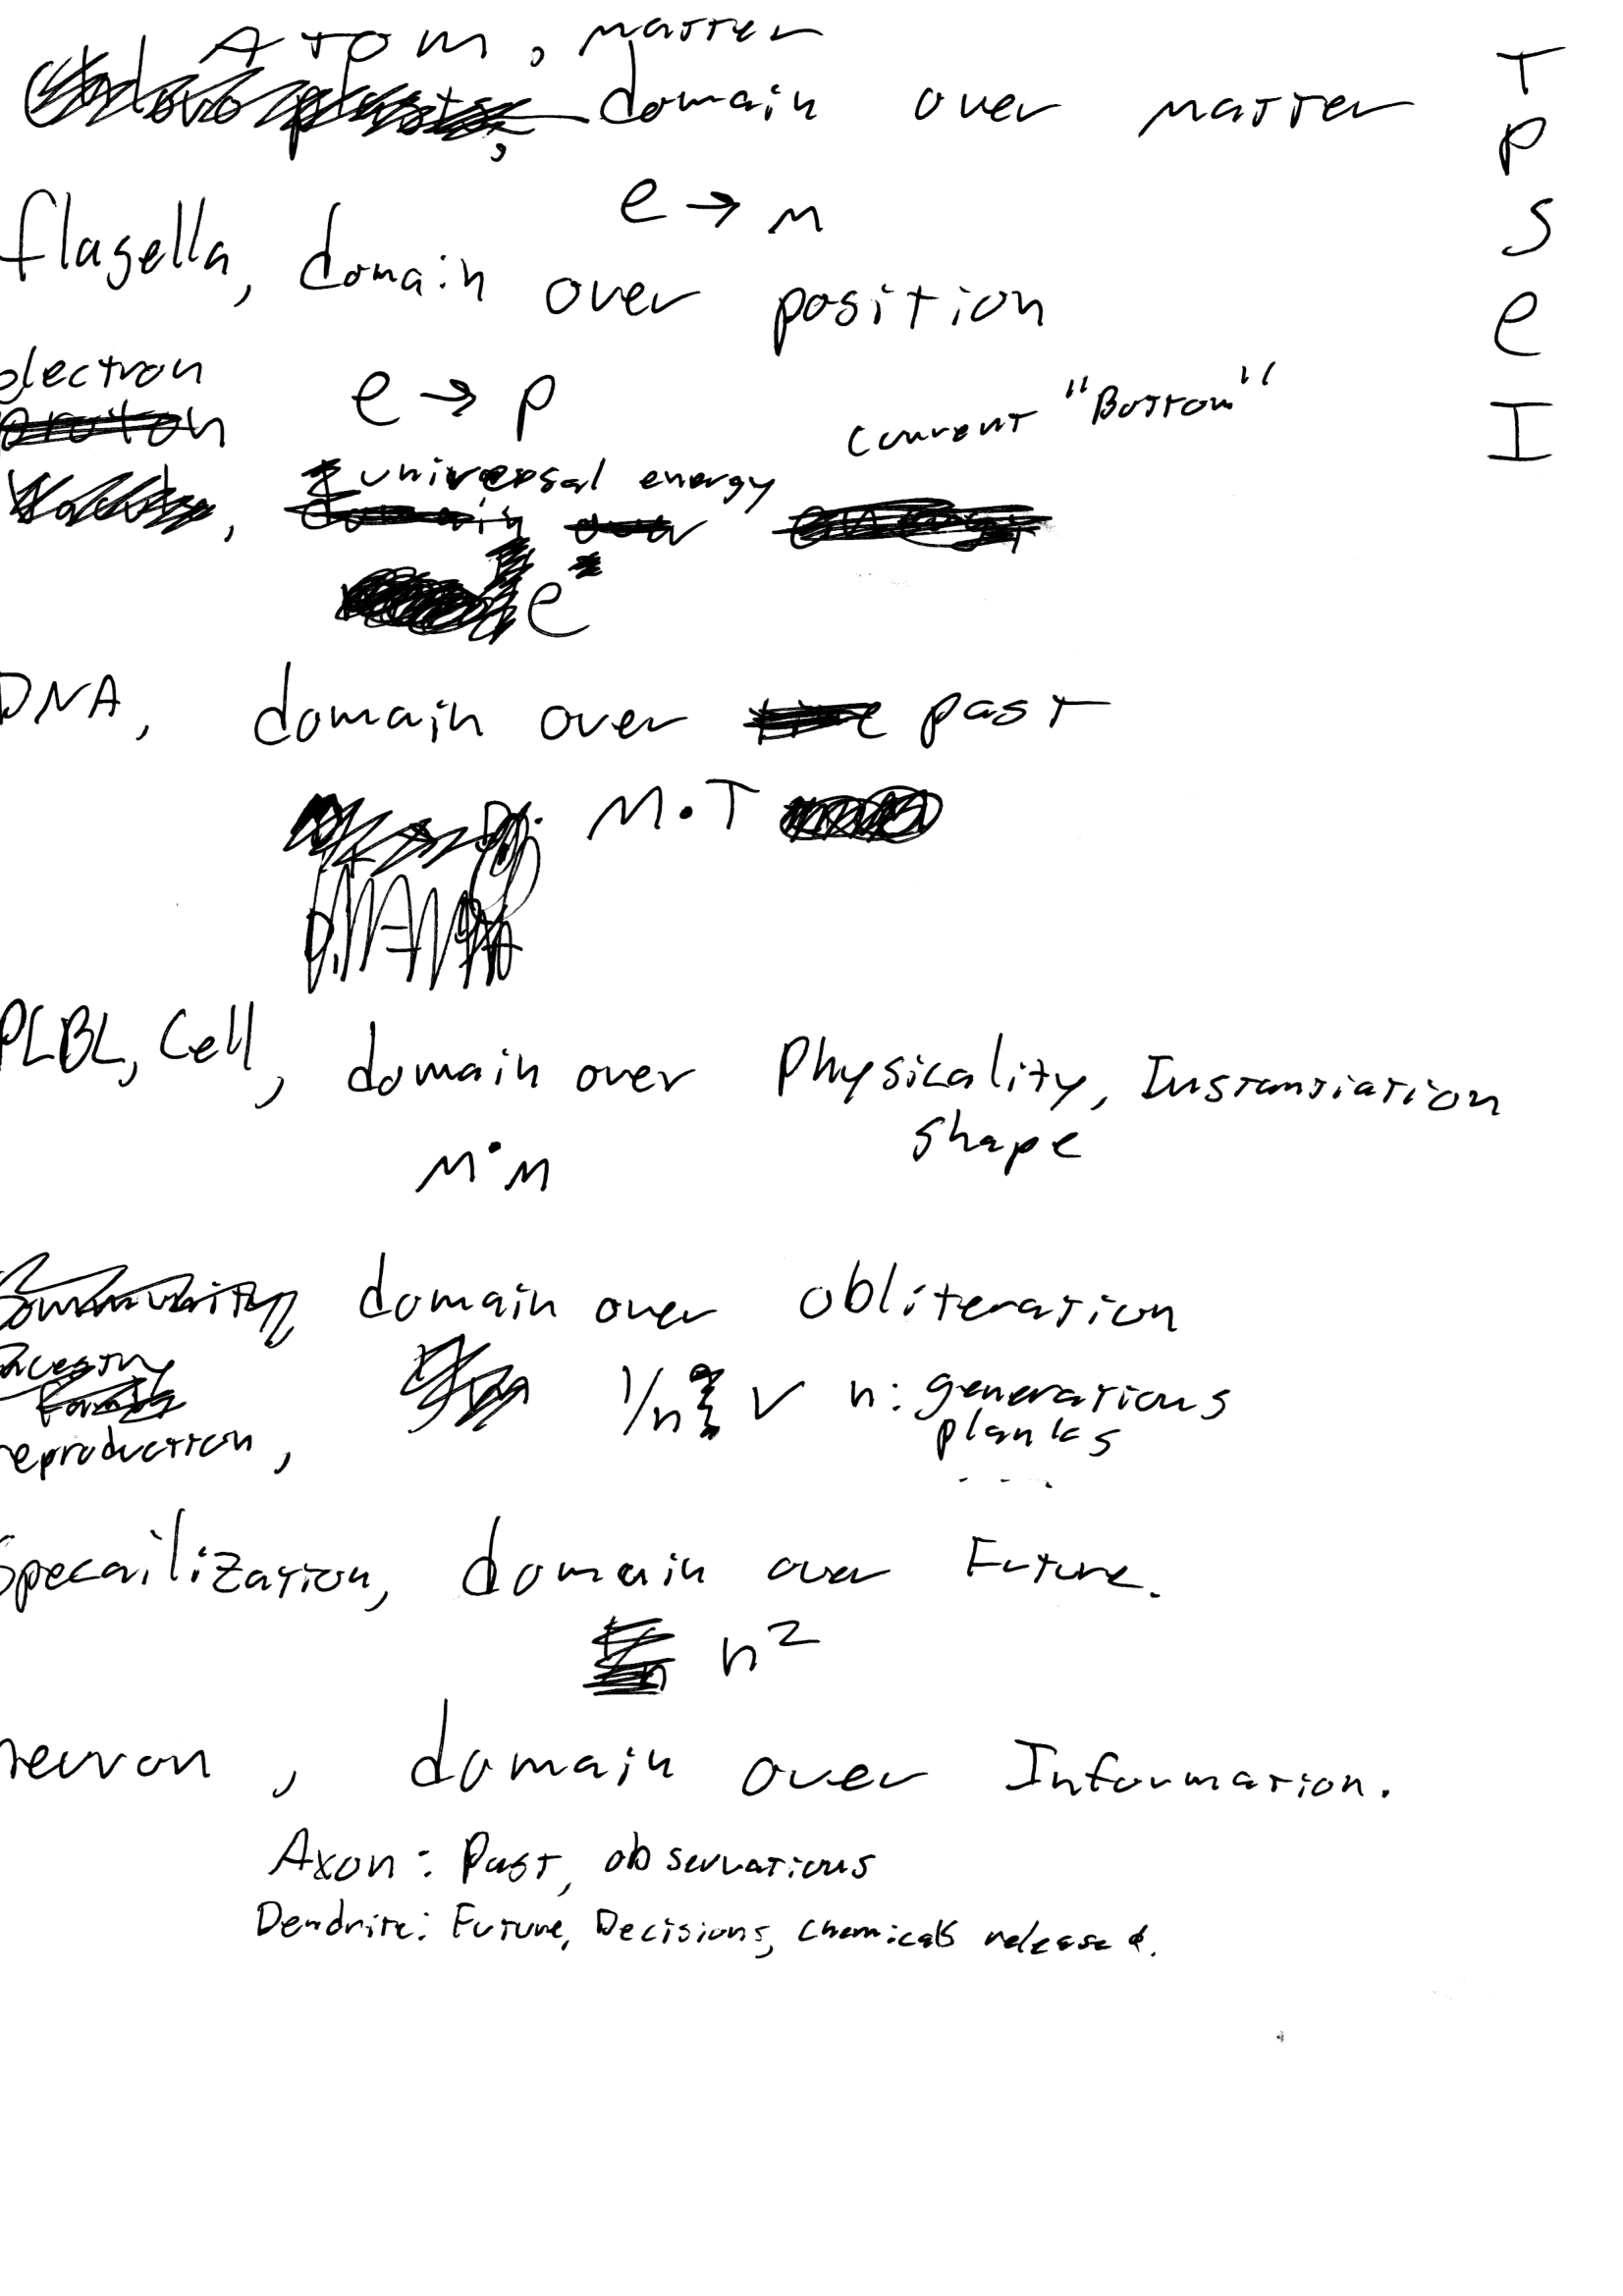 Atom, matter
domain over matter
e → m
flagella, domain over position
electron
proton
e → p
current "Bottom"
universal energy
, domain over energy
e
DNA, domain over time past
M·T
DNA
PLBL, Cell, domain over Physicality, Instantiation
shape
M·M
Community domain over obliteration
Ancestry
Family
1/n V n: generations
planks
reproduction,
Specailization, domain over Future.
n²
neuron, domain over Information.
Axon: Past, observations
Dendrite: Future, Decisions, chemicals released.
T
P
S
e
I